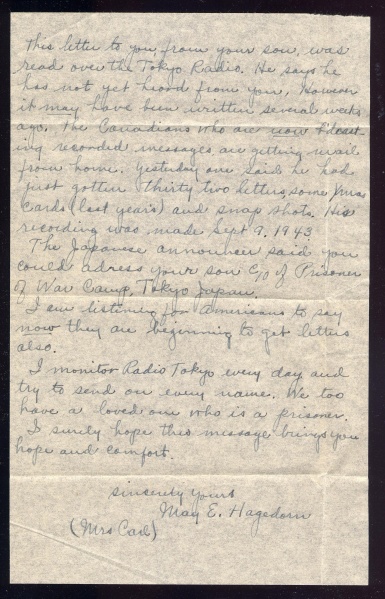 This letter to you, from your son, was
read over the Tokyo Radio. He says he
has not yet heard from you, However
it may have been written several weeks
ago. The Canadians who are now
ing recorded messages are getting mail
from home. Yesterday one said he had
just gotten thirty two letters, some Xmas
Cards (last years) and snap shots. His
recording was made Sept 9, 1943
The Japanese announcer said you
could adress your son C/o of Prisoner
of War Camp, Tokyo Japan.
I am listening for Americans to say
now they are beginning to get letters
also.
I monitor Radio Tokyo every day and
try to send on every name. We too
have a loved one who is a prisoner.
I surely hope this message brings you
hope and comfort.
Sincerely Yours
May E. Hagedorn
(Mrs Carl)